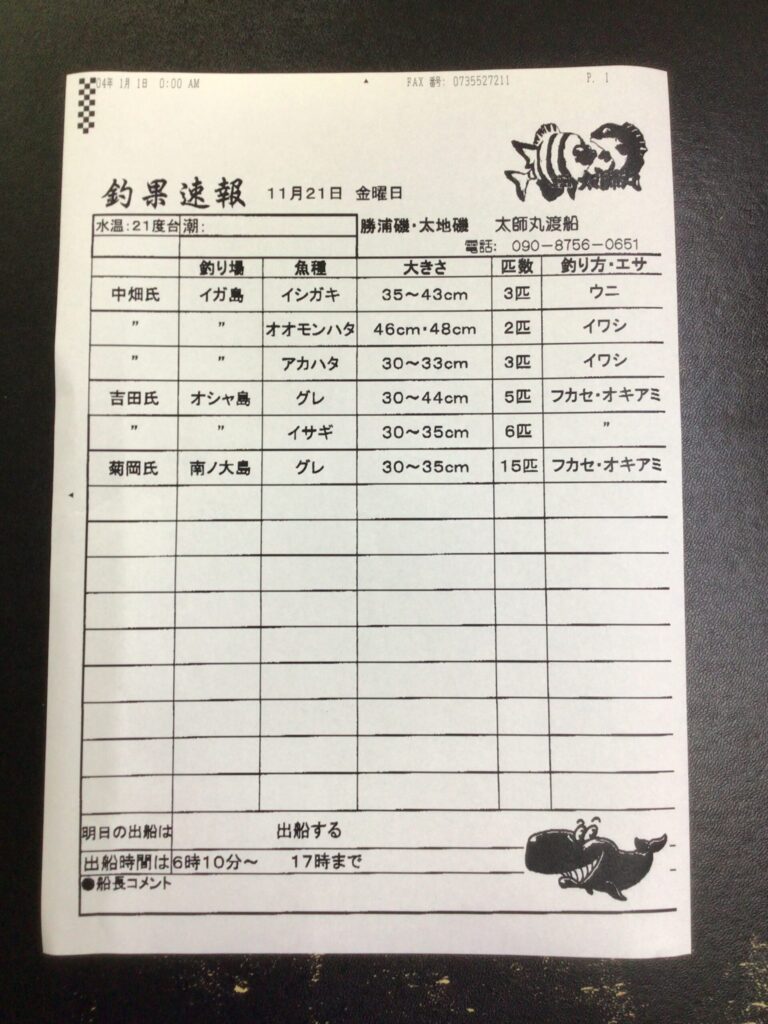 04年 1月 1日 0:00 AM FAX 番号: 0735527211 P. 1
太師丸
釣果速報 11月21日 金曜日
水温:21度台 潮: 勝浦磯・太地磯 太師丸渡船
電話: 090-8756-0651
釣り場 魚種 大きさ 匹数 釣り方・エサ
中畑氏 イガ島 イシガキ 35~43cm 3匹 ウニ
〃 〃 オオモンハタ 46cm・48cm 2匹 イワシ
〃 〃 アカハタ 30~33cm 3匹 イワシ
吉田氏 オシャ島 グレ 30~44cm 5匹 フカセ・オキアミ
〃 〃 イサギ 30~35cm 6匹 〃
菊岡氏 南ノ大島 グレ 30~35cm 15匹 フカセ・オキアミ
明日の出船は 出船する
出船時間は 6時10分~ 17時まで
●船長コメント